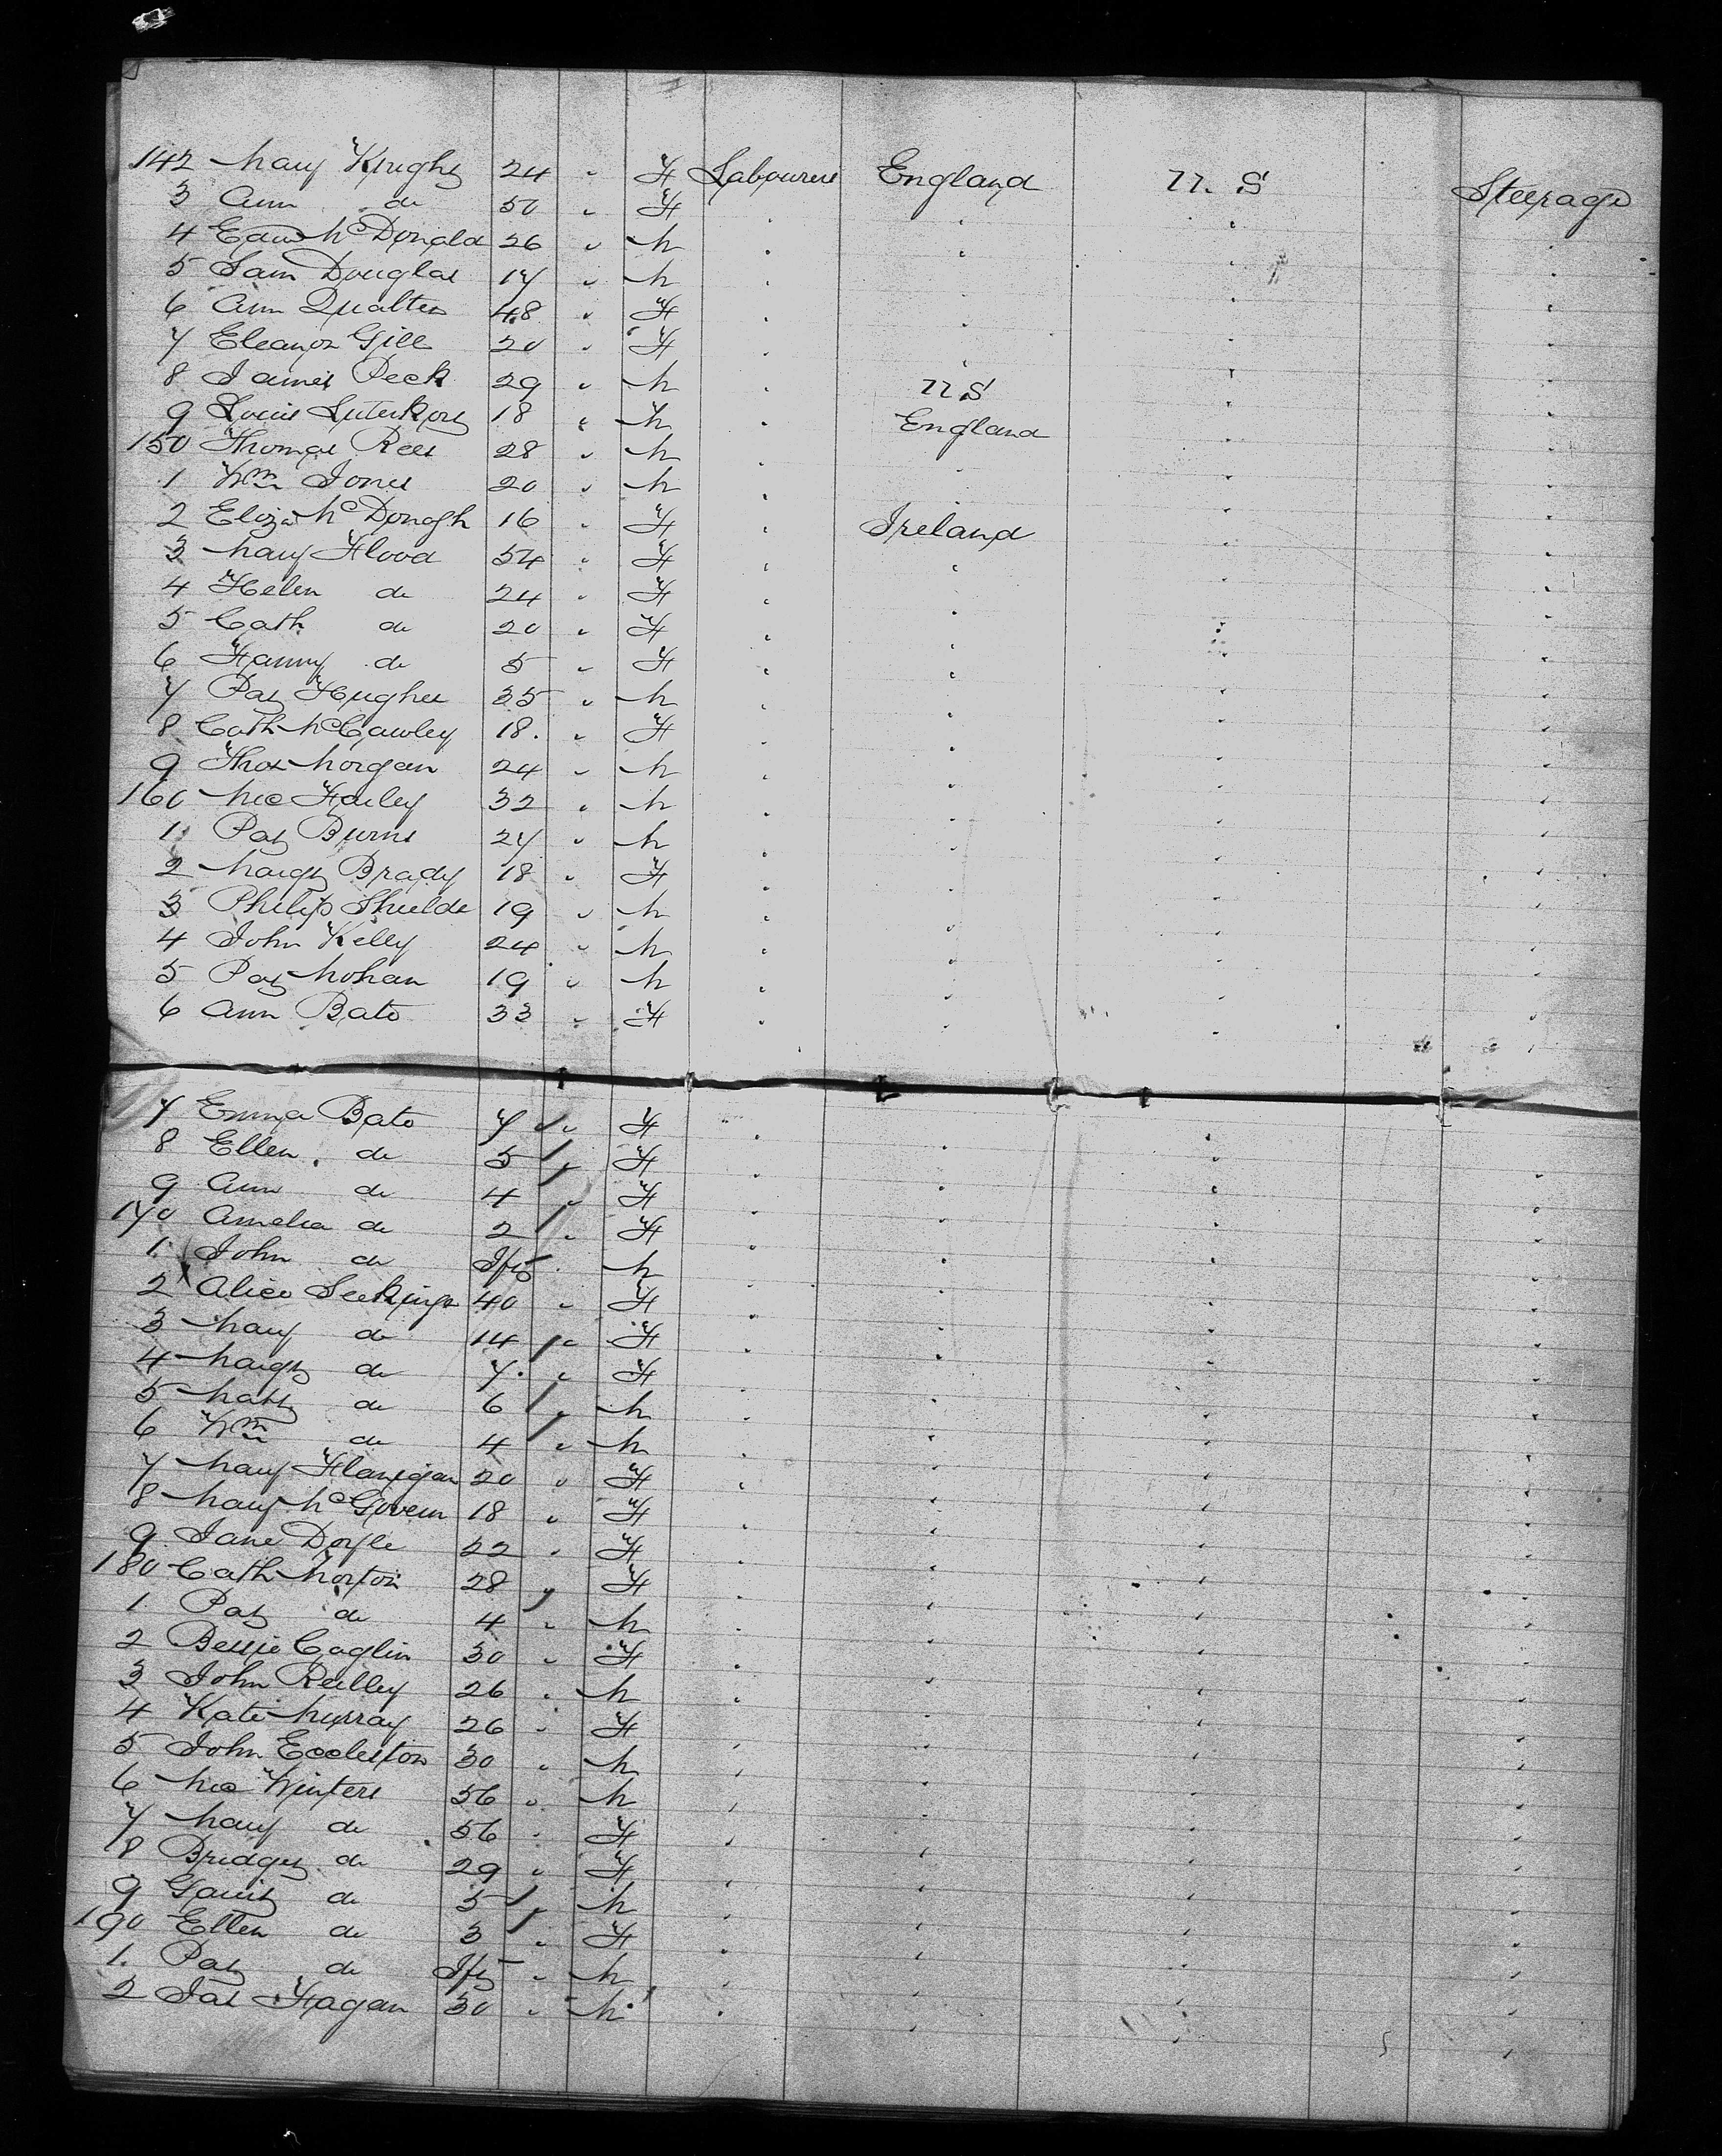 142 Mary Knight 24 " F Labourers England U.S Steerage
3 Ann do 50 " F " " " "
4 Edwd McDonald 26 " M " " " "
5 Sam Douglas 17 " M " " " "
6 Ann Qualter 48 " F " " " "
7 Eleanor Gill 20 " F " " " "
8 James Peck 29 " M " U.S " "
9 Louis 18 " M " England " "
150 Thomas Rees 28 " M " " " "
1 Wm Jones 20 " M " " " "
2 Eliza McDonogh 16 " F " Ireland " "
3 Mary Flood 54 " F " " " "
4 Helen do 24 " F " " " "
5 Cath do 20 " F " " " "
6 Fanny do 5 " F " " " "
7 Pat Hughes 35 " M " " " "
8 Cath McCawley 18 " F " " " "
9 Thos Morgan 24 " M " " " "
160 Mic Farley 32 " M " " " "
1 Pat Burns 27 " M " " " "
2 Margt Brady 18 " F " " " "
3 Philip Shields 19 " M " " " "
4 John Kelly 24 " M " " " "
5 Pat Mohan 19 " M " " " "
6 Ann Bate 33 " F " " " "
7 Emma Bate 7 " F " " " "
8 Ellen do 5 " F " " " "
9 Ann do 4 " F " " " "
170 Amelia do 2 " F " " " "
1 John do Inft " M " " " "
2 Alice Seekings 40 " F " " " "
3 Mary do 14 " F " " " "
4 Margt do 7 " F " " " "
5 Matt do 6 " M " " " "
6 Wm do 4 " M " " " "
7 Mary Flanigan 20 " F " " " "
8 Mary McGovern 18 " F " " " "
9 Jane Doyle 22 " F " " " "
180 Cath Norton 28 " F " " " "
1 Pat do 4 " M " " " "
2 Bessie Coglin 30 " F " " " "
3 John Reilley 26 " M " " " "
4 Kate Murray 26 " F " " " "
5 John Eccleston 30 " M " " " "
6 Mic Winters 56 " M " " " "
7 Mary do 56 " F " " " "
8 Bridget do 29 " F " " " "
9 do 5 " M " " " "
190 Ellen do 3 " F " " " "
1 Pat do Inft " M " " " "
2 Jas Fagan 30 " M " " " "